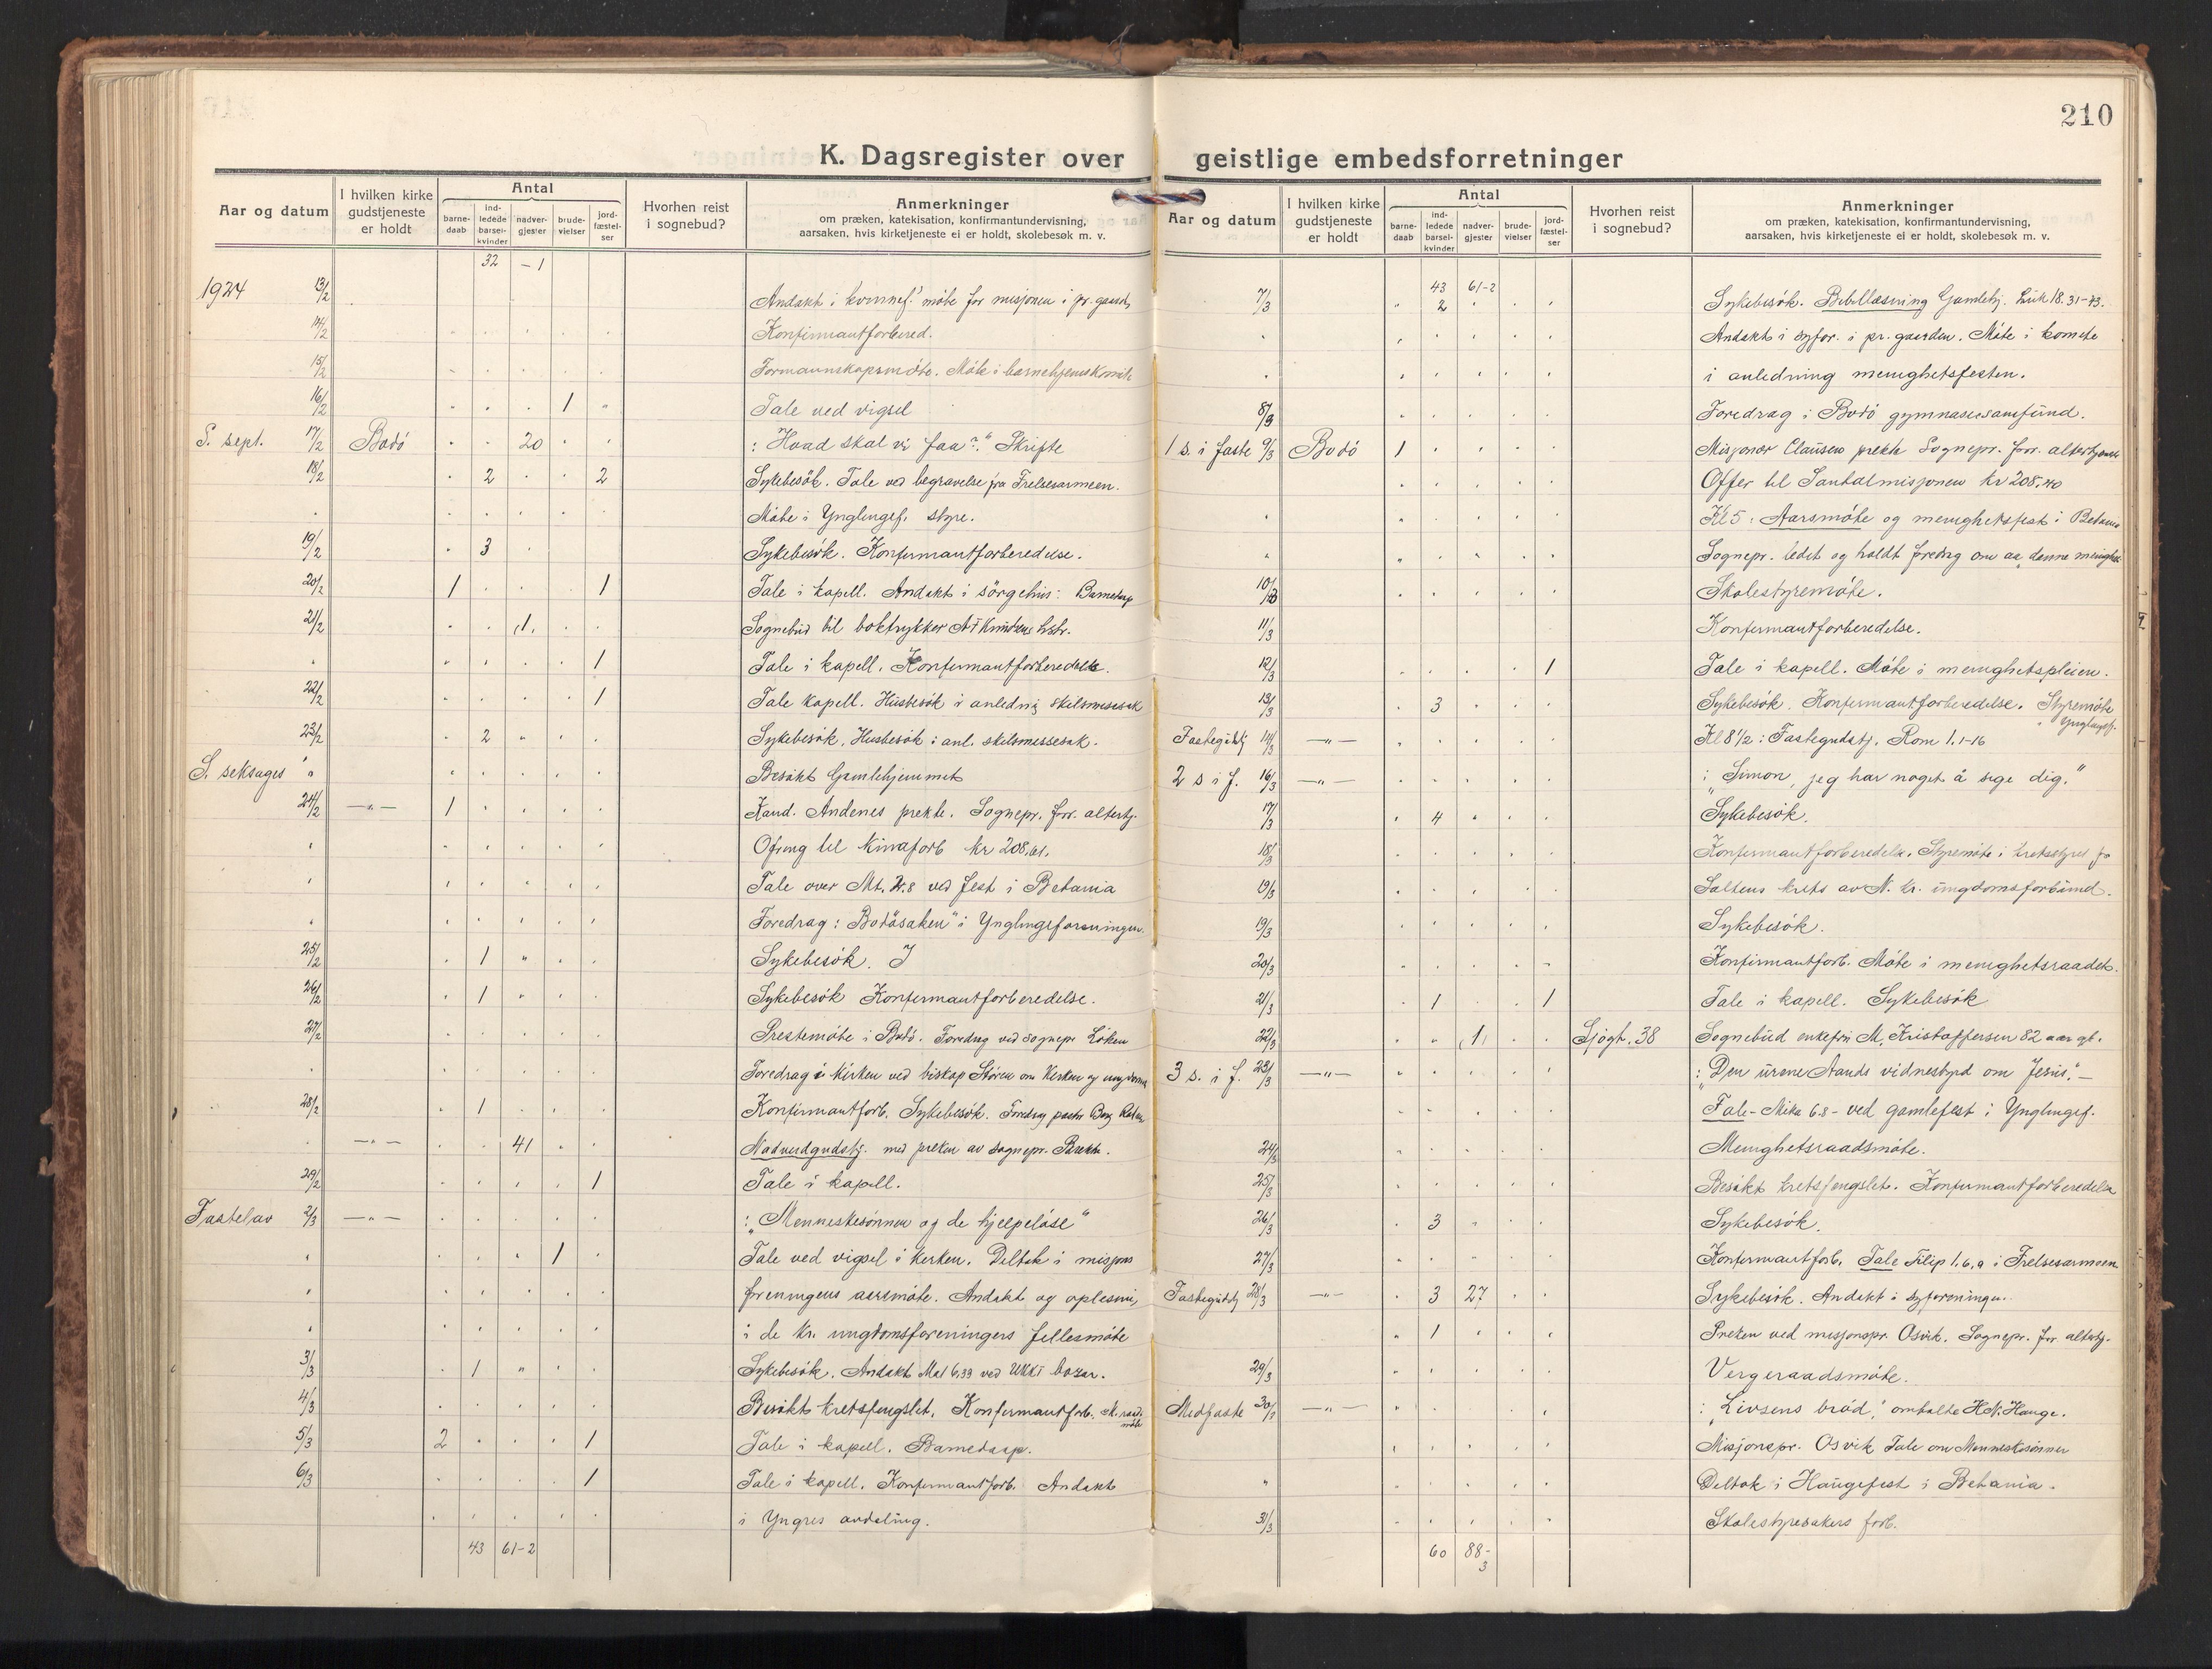 210
K. Dagsregister over geistlige embedsforretninger
Aar og datum
I hvilken kirke gudstjeneste er holdt
Antal
barne-daab
ind-ledede barsel-kvinder
nadver-gjester
brude-vielser
jord-fæstel-ser
Hvorhen reist i sognebud?
Anmerkninger
om præken, katekisation, konfirmantundervisning,
aarsaken, hvis kirketjeneste ei er holdt, skolebesøk m. v.
32 - 1
1924 13/2 Andakt i kvinnef. møte for misjonen i pr. gaard
14/2 Konfirmantforbered.
15/2 Formannskapsmöte. Möte i barnehjemskomite
16/2 1 Tale ved vigsel
S. sept. 17/2 Bodö 20 : "Hvad skal vi faa?" Skrifte
18/2 2 2 Sykebesök. Tale ved begravelse fra Frelsesarmeen.
Möte i Ynglingef. styre.
19/2 3 Sykebesök. Konfirmantforberedelse.
20/2 1 1 Tale i kapell. Andakt i sörgehus: Barnedaap
21/2 1 Sognebud til boktrykker Knudsens hstr.
1 Tale i kapell. Konfirmantforberedelse.
22/2 1 Tale kapell. Husbesök i anledning skilsmissesak
23/2 2 Sykebesök, Husbesök i anl. skilsmessesak.
S. seksages Besökt Gamlehjemmet
24/2 -"- 1 Kand. Andenes prekte. Sognepr. forr. altertj.
Ofring til Kinaforb kr 208,61.
Tale over Mt. 7.8 ved fest i Betania
Foredrag: "Bodösaken" i Ynglingeforeningen.
25/2 1 Sykebesök. J
26/2 1 Sykebesök Konfirmantforberedelse.
27/2 Prestemöte i Bodö. Foredrag ved sognepr Löken
Foredrag i Kirken ved biskop Stören om Kirken og ungdommen
28/2 1 Konfirmantforb. Sykebesök. Foredrag pastor Berg
-"- 41 Nadverdgudstj. med preken av sognepr. Brekke.
29/2 1 Tale i kapell.
Fastelav 2/3 -"- : "Menneskesönnen og de hjelpelöse"
1 Tale ved vigsel i kirken. Deltok i misjons
foreningens aarsmöte. Andakt og oplesning
i de kr. ungdomsforeningers fellesmöte
3/3 1 Sykebesök. Andakt Mat 6,33 ved UKKF bazar.
4/3 Besökt kretsfengslet. Konfirmantforb. M. raads möte
5/3 2 1 Tale i kapell. Barnedaap.
6/3 1 Tale i kapell. Konfirmantforb. Andakt
i Yngres avdeling.
43 61-2
Aar og datum
I hvilken kirke gudstjeneste er holdt
Antal
barne-daab
ind-ledede barsel-kvinder
nadver-gjester
brude-vielser
jord-fæstel-ser
Hvorhen reist i sognebud?
Anmerkninger
om præken, katekisation, konfirmantundervisning,
aarsaken, hvis kirketjeneste ei er holdt, skolebesøk m. v.
43 61-2
7/3 2 Sykebesök. Bibellæsning Gamlehj. Luk 18. 31-43.
Andakt i syfor. i pr. gaarden. Möte i komite
i anledning menighetsfesten.
8/3 Foredrag i Bodö gymnasiesamfund.
1 s. i faste 9/3 Bodö 1 Misjonær Clausen prekte Sognepr. forr. altertjeneste
Offer til Santalmisjonen kr 208,40
Kl 5: Aarsmöte og menighetsfest i Betania
Sognepr. ledet og holdt foredrag om aa danne menighet
10/3 Skolestyremöte.
11/3 Konfirmantforberedelse.
12/3 1 Tale i kapell. Möte i menighetspleien.
13/3 3 Sykebesök. Konfirmantforberedelse. Styremöte Ynglingef.
Fastegudstj 14/3 -"- Kl 8 1/2: Fastegudstj. Rom 1. 1-16
2 s i f. 16/3 -"- : "Simon, jeg har noget å sige dig."
17/3 4 Sykebesök.
18/3 Konfirmantforberedelse. Styremöte i kretsstyret for
19/3 Saltens krets av N. kr. ungdomsforbund.
19/3 Sykebesök.
20/3 Konfirmantforb. Möte i menighetsraadet.
21/3 1 1 Tale i kapell. Sykebesök
22/3 1 Sjögt. 38 Sognebud enkefru M. Kristoffersen 82 aar gl.
3 s. i f. 23/3 -"- : "Den urene Aands vidnesbyrd om Jesus." -
Tale - Mika 6.8 - ved gamlefest i Ynglingef.
24/3 Menighetsraadsmöte.
25/3 Besökt kretsfengslet. Konfirmantforberedelse
26/3 3 Sykebesök.
27/3 Konfirmantforb. Tale Filip 1.6,9 i Frelsesarmeen
Fastegudstj 28/3 -"- 3 27 Sykebesök. Andakt i syforeningen.
1 Preken ved misjonspr. Osvik. Sognepr. forr altertj.
29/3 Vergeraadsmöte.
Midfaste 30/3 -"- : "Livsens bröd," omtalte H.N. Hauge.
Misjonspr. Osvik Tale om Menneskesönnen
Deltok i Haugefest i Betania.
31/3 Skolestyresakers forb.
60 88-3